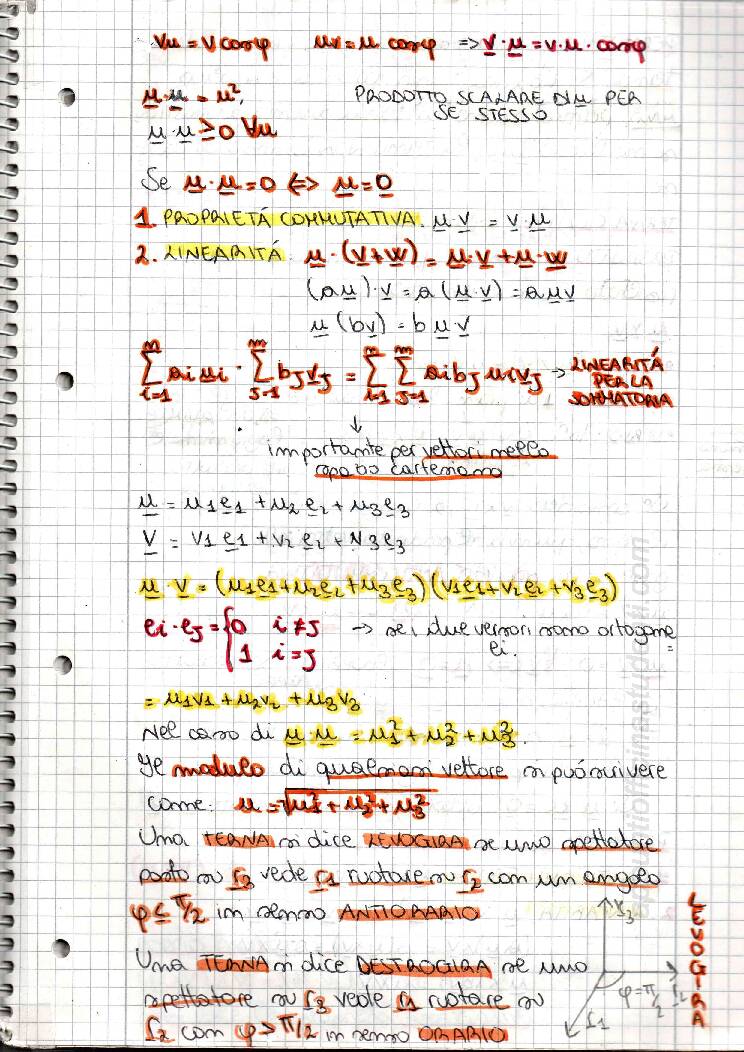 Vu = V cosφ uv = u cosφ => v · u = v · u · cosφ
u · u = u².
PRODOTTO SCALARE DI u PER SE STESSO
u · u ≥ 0 ∀u
Se u · u = 0 <=> u = 0
1. PROPRIETÁ COMMUTATIVA. u · v = v · u
2. LINEARITÁ: u · (v + w) = u · v + u · w
(au) · v = a (u · v) = a u v
u (bv) = b u v
∑ i=1 n ai ui · ∑ J=1 m bJ vJ = ∑ i=1 n ∑ J=1 m ai bJ ui vJ → LINEARITÁ PER LA SOMMATORIA
↓
importante per vettori nello
spazio cartesiano
u = u1 e1 + u2 e2 + u3 e3
V = v1 e1 + v2 e2 + v3 e3
u · v = (u1e1 + u2e2 + u3e3) (v1e1 + v2e2 + v3e3)
ei · eJ = { 0 i ≠ J → se i due versori sono ortogona=
1 i = J ei.
= u1v1 + u2v2 + u3v3
Nel caso di u · u = u1² + u2² + u3².
Il modulo di qualsiasi vettore si puó scrivere
come: u = √u1² + u2² + u3²
Una TERNA si dice LEVOGIRA se uno spettatore
posto su r3 vede r1 ruotare su r2 con un angolo
φ ≤ π/2 in senso ANTIORARIO
Una TERNA si dice DESTROGIRA se uno
spettatore su r3 vede r1 ruotare su
r2 con φ > π/2 in senso ORARIO
r3
φ = π/2 r2
r1
LEVOGIRA
appuntiofficinastudenti.com